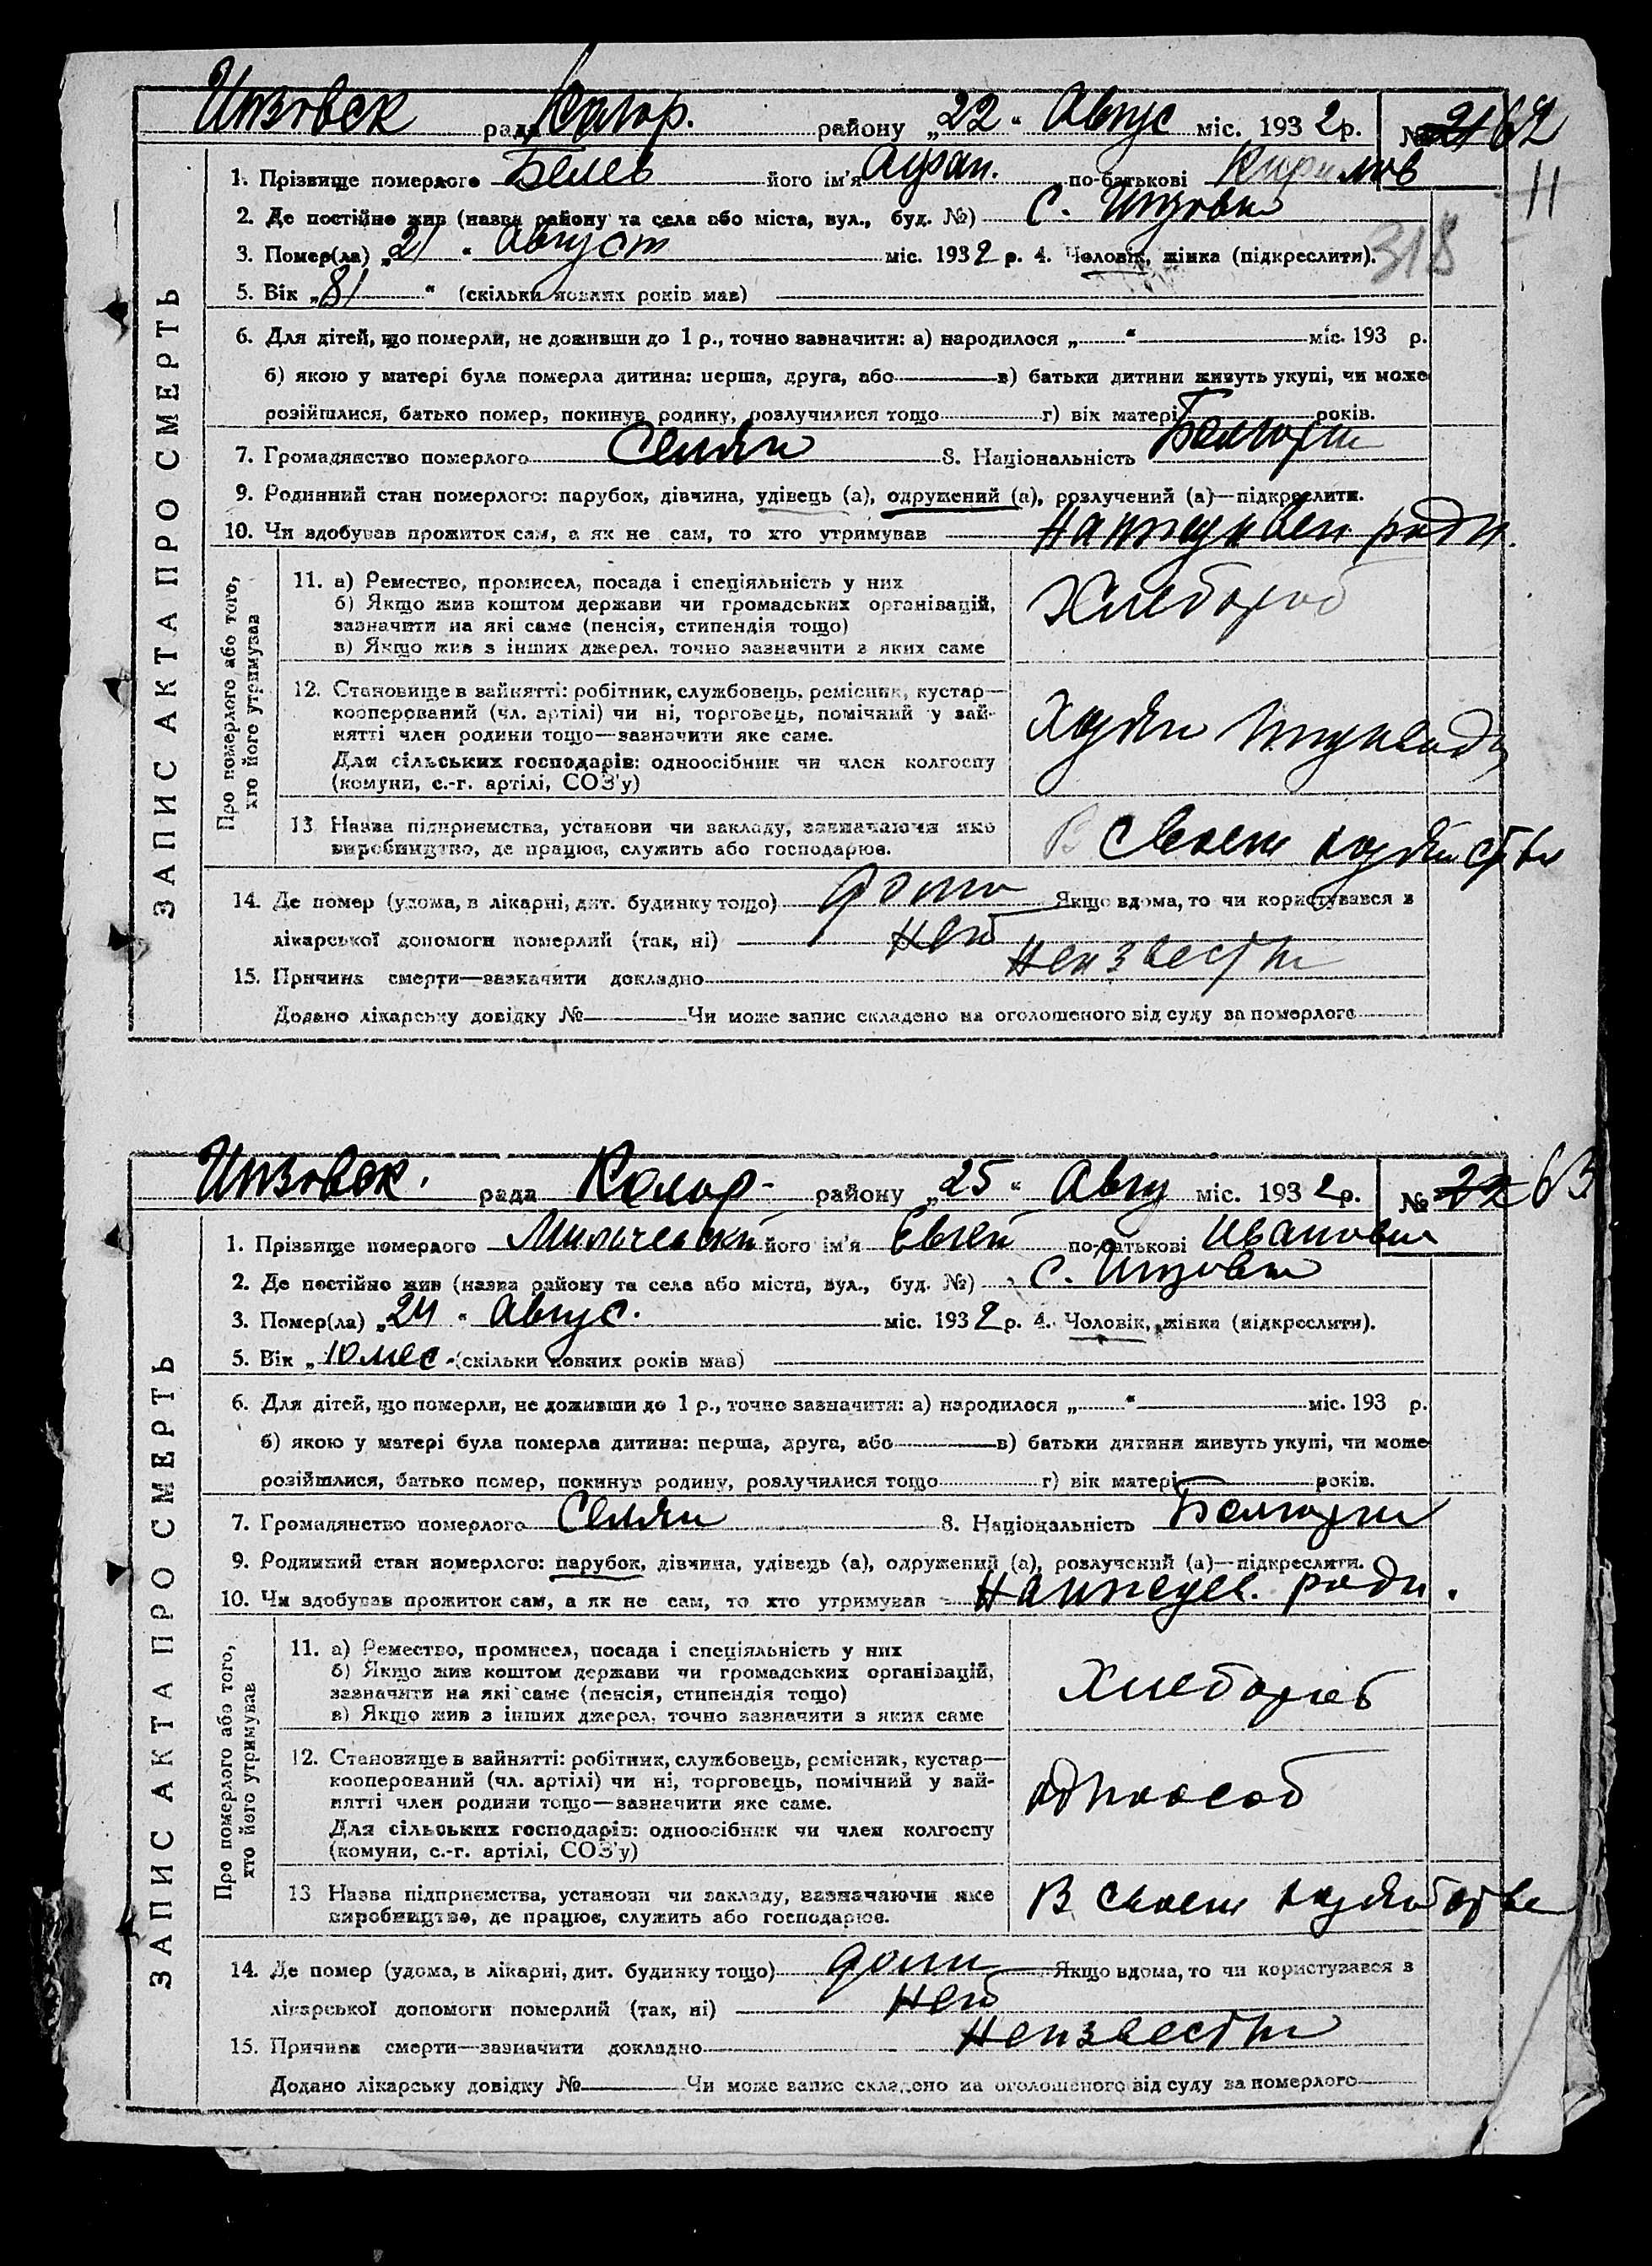 Инзовск рада Колар. району „22“ Авгус міс. 1932 р. № 21 62
11
1. Прізвище померлого Белев його ім'я по-батькові Кирилов
2. Де постійно жив (назва району та села або міста, вул., буд. №) С. Инзовк
3. Помер(ла) „21“ Август міс. 1932 р. 4. Чоловік, жінка (підкреслити). 318
5. Вік „81“ (скільки повних років мав)
6. Для дітей, що померли, не доживши до 1 р., точно зазначити: а) народилося „ “ міс. 193 р.
б) якою у матері була померла дитина: перша, друга, або в) батьки дитини живуть укупі, чи може
розійшлися, батько помер, покинув родину, розлучилися тощо г) вік матері років.
7. Громадянство померлого Селян 8. Національність Болгарин
9. Родинний стан померлого: парубок, дівчина, удівець (а), одружений (а), розлучений (а)—підкреслити.
10. Чи здобував прожиток сам, а як не сам, то хто утримував На иждивен роди.
ЗАПИС АКТА ПРО СМЕРТЬ
Про померлого або того,
хто його утримував
11. а) Ремество, промисел, посада і спеціяльність у них
б) Якщо жив коштом держави чи громадських організацій,
зазначити на які саме (пенсія, стипендія тощо)
в) Якщо жив з інших джерел, точно зазначити з яких саме
Хлебороб
12. Становище в занятті: робітник, службовець, ремісник, кустар—
кооперований (чл. артілі) чи ні, торговець, помічний у зай-
нятті член родини тощо—зазначити яке саме.
Для сільських господарів: одноосібник чи член колгоспу
(комуни, с.-г. артілі, СОЗ'у)
13 Назва підприємства, установи чи закладу, зазначаючи яке
виробництво, де працює, служить або господарює.
В своем хозяйстве
14. Де помер (удома, в лікарні, дит. будинку тощо) дома Якщо вдома, то чи користувався з
лікарської допомоги померлий (так, ні) нет
15. Причина смерти—зазначити докладно Неизвестн
Додано лікарську довідку № Чи може запис складено на оголошеного від суду за померлого
Инзовск. рада Колар. району „25“ Авгу міс. 1932 р. № 22 63
1. Прізвище померлого Мильчевский його ім'я Евген по-батькові Иванович
2. Де постійно жив (назва району та села або міста, вул., буд. №) С. Инзовк
3. Помер(ла) „24“ Авгус. міс. 1932 р. 4. Чоловік, жінка (підкреслити).
5. Вік „10 мес“ (скільки повних років мав)
6. Для дітей, що померли, не доживши до 1 р., точно зазначити: а) народилося „ “ міс. 193 р.
б) якою у матері була померла дитина: перша, друга, або в) батьки дитини живуть укупі, чи може
розійшлися, батько помер, покинув родину, розлучилися тощо г) вік матері років.
7. Громадянство померлого Селян 8. Національність Болгарин
9. Родинний стан померлого: парубок, дівчина, удівець (а), одружений (а), розлучений (а)—підкреслити.
10. Чи здобував прожиток сам, а як не сам, то хто утримував На иждев. роди.
ЗАПИС АКТА ПРО СМЕРТЬ
Про померлого або того,
хто його утримував
11. а) Ремество, промисел, посада і спеціяльність у них
б) Якщо жив коштом держави чи громадських організацій,
зазначити на які саме (пенсія, стипендія тощо)
в) Якщо жив з інших джерел, точно зазначити з яких саме
Хлебороб
12. Становище в занятті: робітник, службовець, ремісник, кустар—
кооперований (чл. артілі) чи ні, торговець, помічний у зай-
нятті член родини тощо—зазначити яке саме.
Для сільських господарів: одноосібник чи член колгоспу
(комуни, с.-г. артілі, СОЗ'у)
одноособ
13 Назва підприємства, установи чи закладу, зазначаючи яке
виробництво, де працює, служить або господарює.
В своем хозяйстве
14. Де помер (удома, в лікарні, дит. будинку тощо) дома Якщо вдома, то чи користувався з
лікарської допомоги померлий (так, ні) нет
15. Причина смерти—зазначити докладно Неизвестн
Додано лікарську довідку № Чи може запис складено на оголошеного від суду за померлого